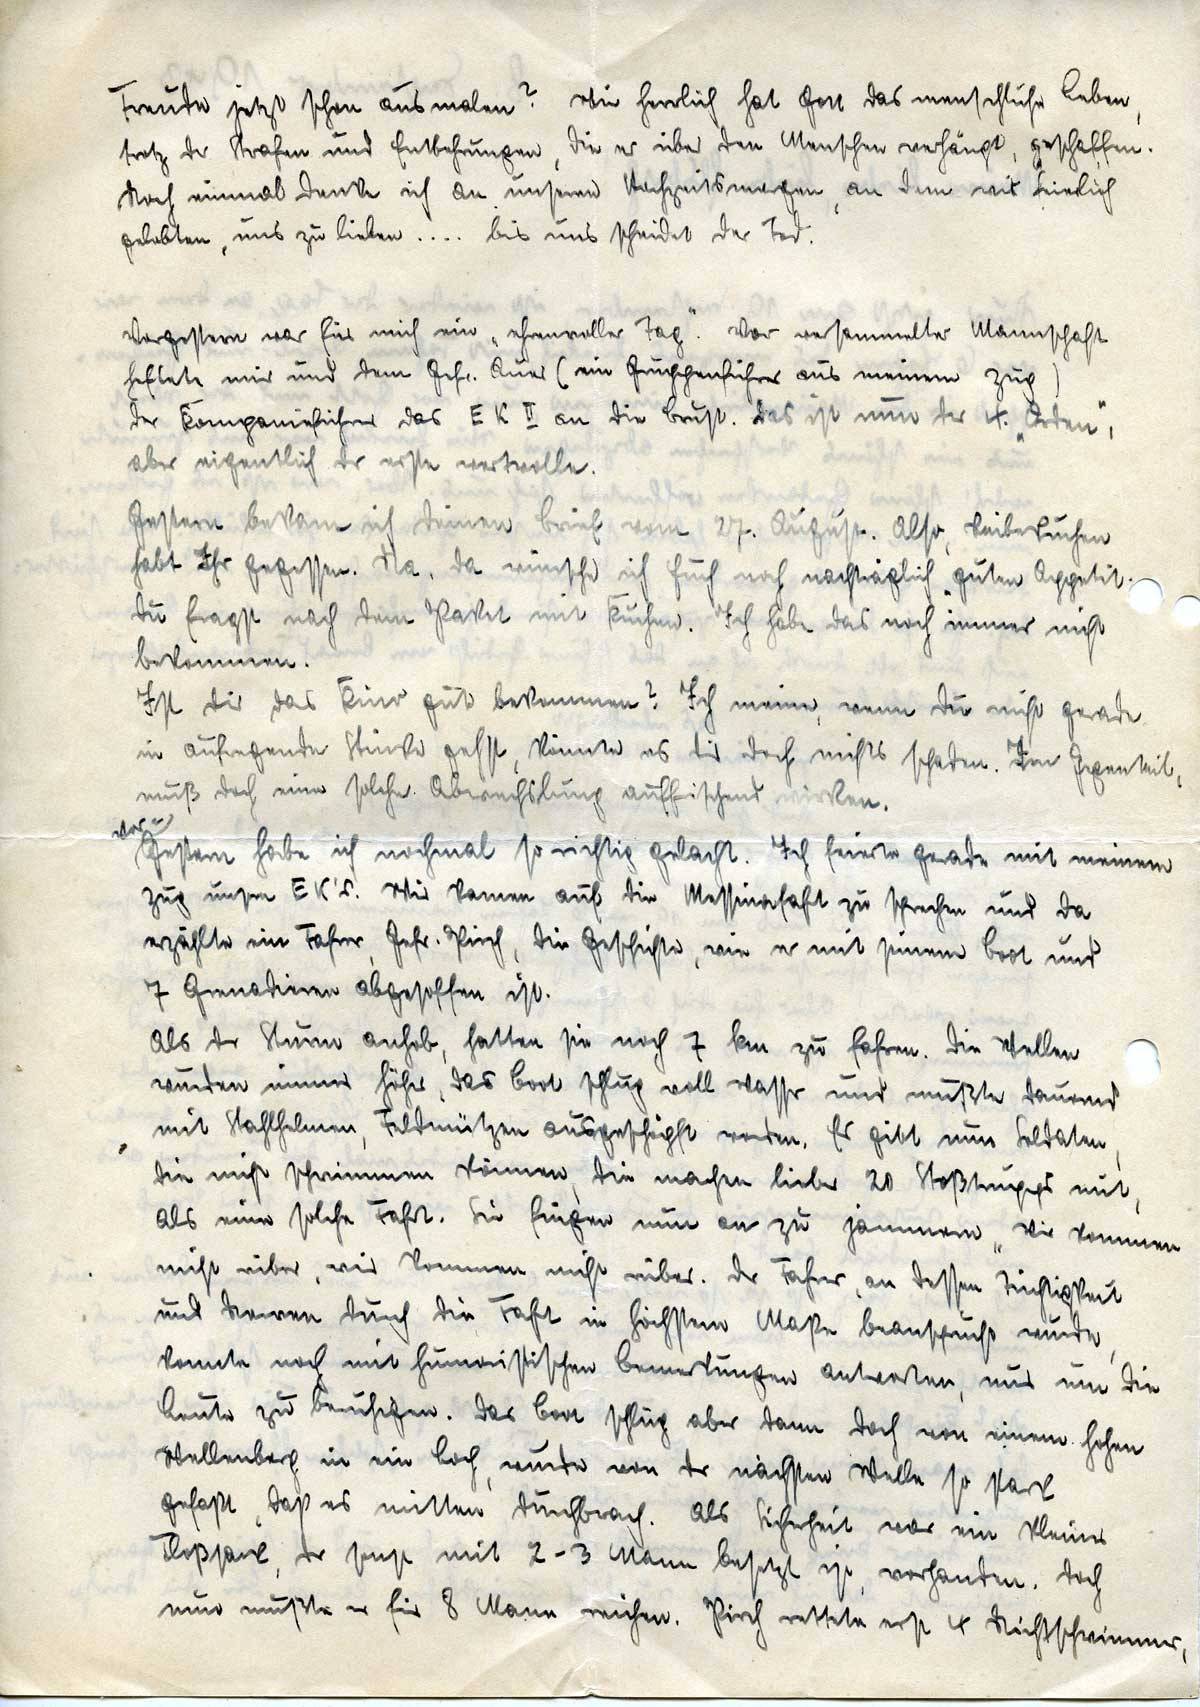 Freude jetzt schon ausmalen? Wie herrlich hat Gott das menschliche Leben,
trotz der Strafen und Entbehrungen, die er über den Menschen verhängt, geschaffen.
Noch einmal denke ich an unseren Hochzeitsmorgen, an dem wir feierlich
gelobten, uns zu lieben .... bis uns scheidet der Tod.
Vorgestern war für mich ein „ehrenvoller Tag". Vor versammelter Mannschaft
heftete mir und dem Gefr. Auer (ein Gruppenführer aus meinem Zug)
der Kompanieführer das EK II an die Brust. Das ist nun der 4. „Orden",
aber eigentlich der erste wertvolle.
Gestern bekam ich deinen Brief vom 27. August. Also, Reibekuchen
habt Ihr gegessen. Na, da wünsche ich Euch noch nachträglich guten Appetit.
Du fragst nach dem Paket mit Kuchen. Ich habe das noch immer nicht
bekommen.
Ist dir das Kino gut bekommen? Ich meine, wenn du nicht gerade
in aufregende Stücke gehst, könnte es dir doch nichts schaden. Im Gegenteil,
muß doch eine solche Abwechslung auffrischend wirken.
vor-
Gestern habe ich nochmal so richtig gelacht. Ich feierte gerade mit meinem
Zug unsere EK's. Wir kamen auf die Messinafahrt zu sprechen und da
erzählte ein Fahrer, Gefr. Pirch, die Geschichte, wie er mit seinem Boot und
7 Grenadieren abgesoffen ist.
Als der Sturm anhob, hatten sie noch 7 km zu fahren. Die Wellen
wurden immer höher, das Boot schlug voll Wasser und mußte dauernd
mit Stahlhelmen, Feldmützen ausgeschöpft werden. Es gibt nun Soldaten,
die nicht schwimmen können, die machen lieber 20 Stoßtrupps mit,
als eine solche Fahrt. Sie fingen nun an zu jammern „Wir kommen
nicht rüber, wir kommen nicht rüber. Der Fahrer, an dessen Tüchtigkeit
und Nerven durch die Fahrt in höchstem Maße beansprucht wurde,
konnte noch mit humoristischen Bemerkungen antworten, nur um die
Leute zu beruhigen. Das Boot schlug aber dann doch von einem hohen
Wellenberg in ein Loch, wurde von der nächsten Welle so stark
gefaßt, daß es mitten durchbrach. Als Sicherheit war ein kleiner
Floßsack, der sonst mit 2-3 Mann besetzt ist, vorhanden. Doch
nun mußte er für 8 Mann reichen. Pirch rettete erst 4 Nichtschwimmer,